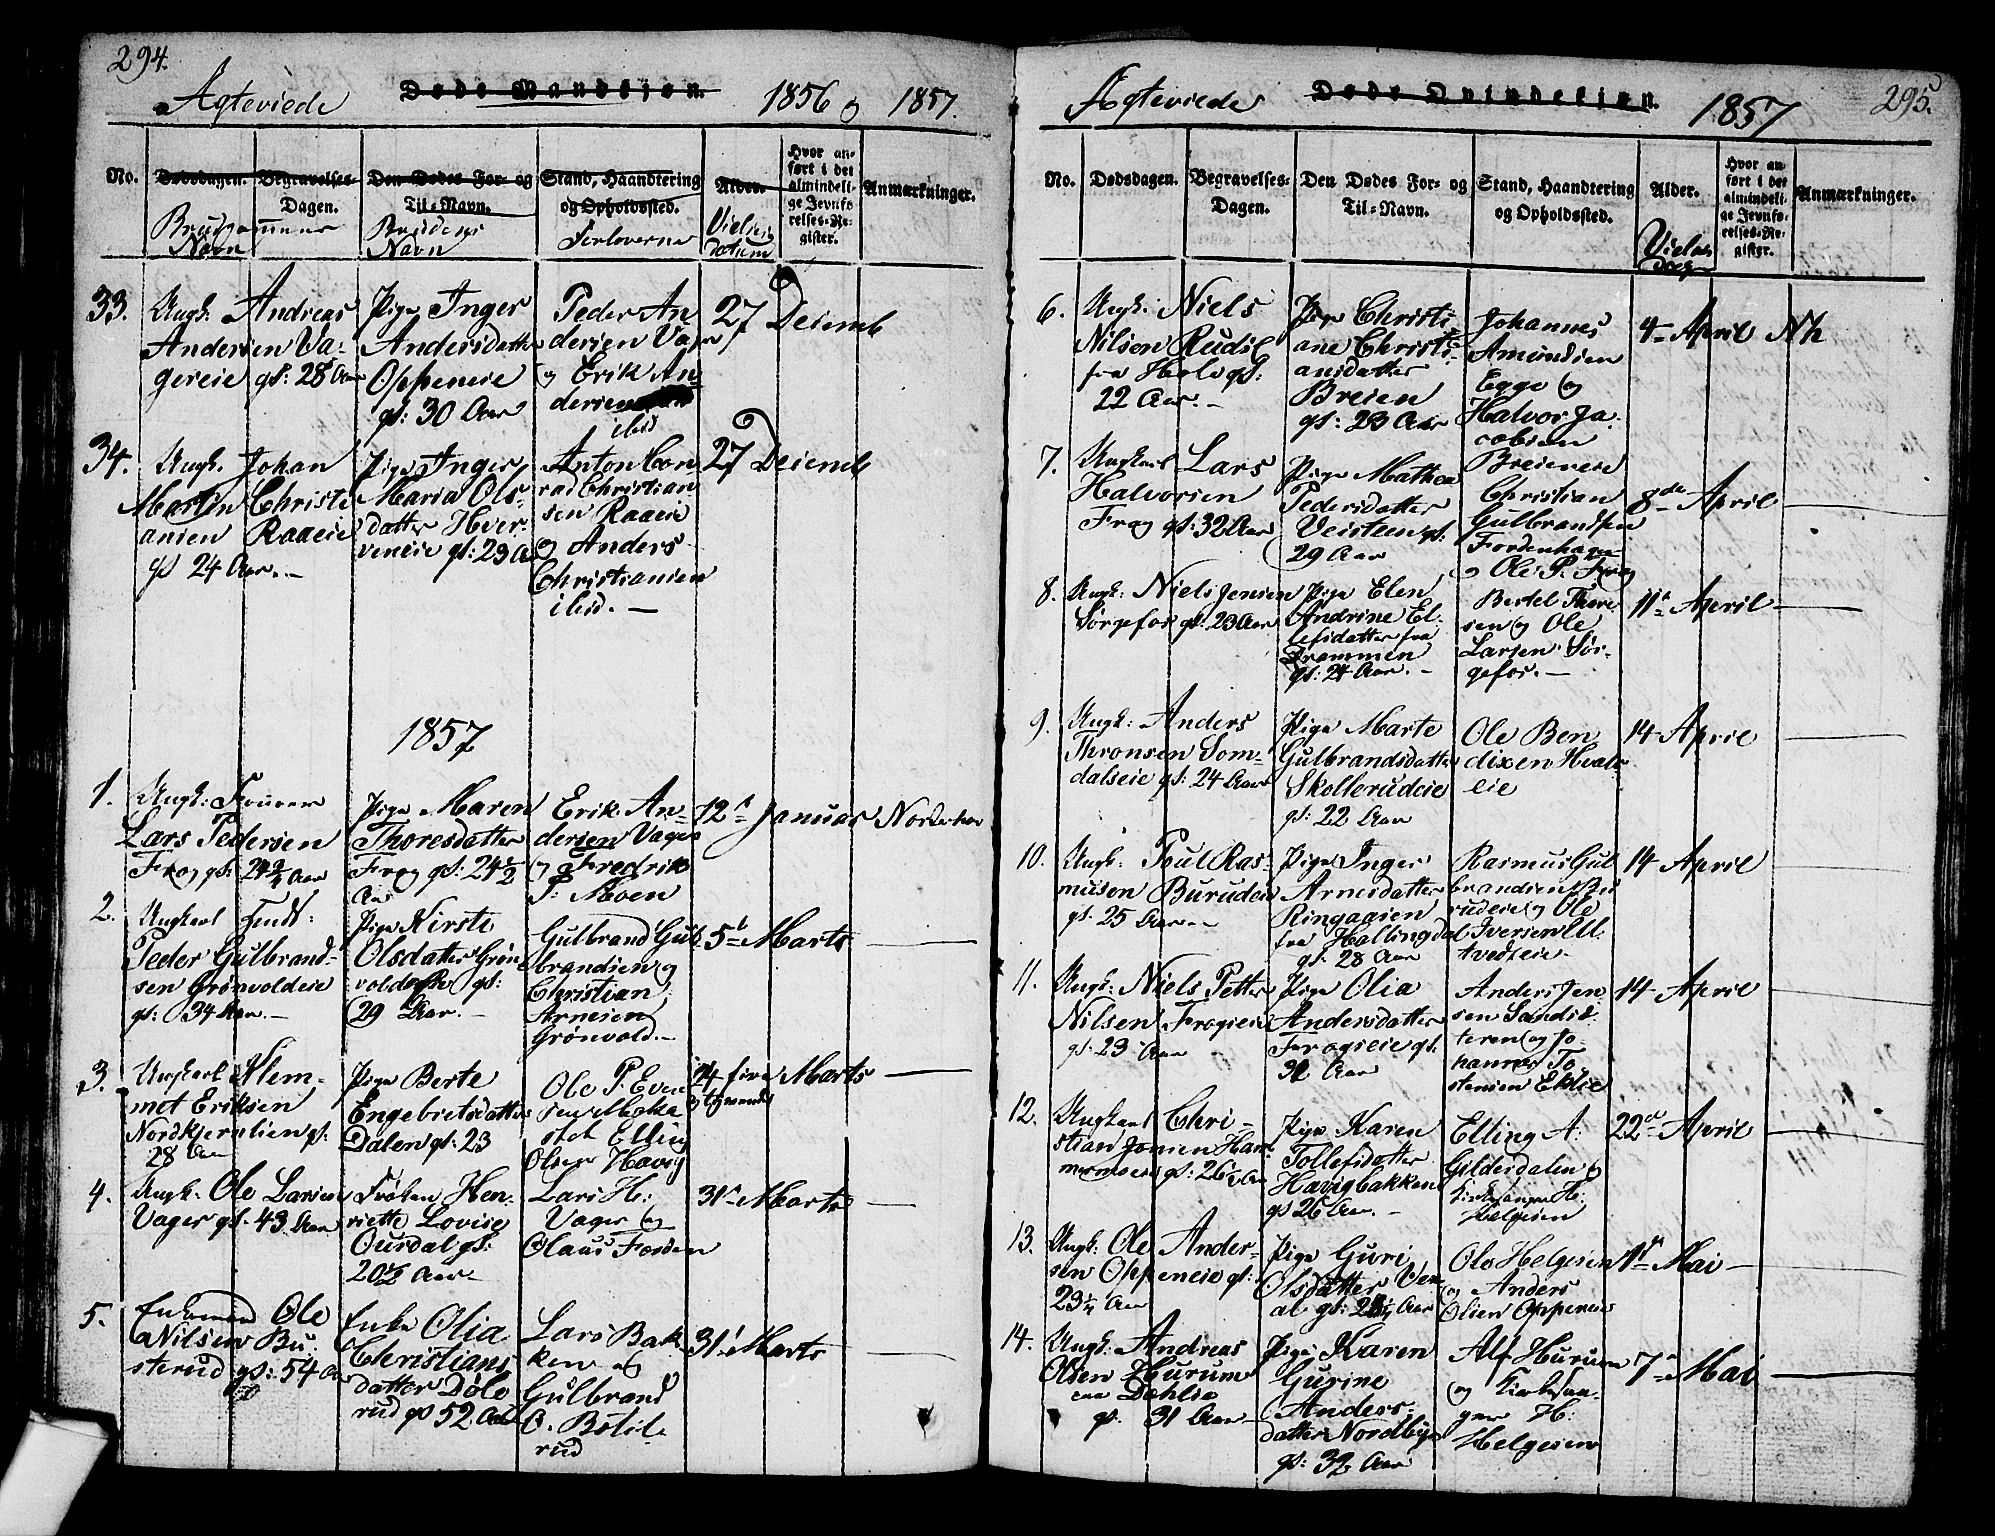 294.
Ægteviede
Døde Mandkjøn.
1856 og 1857.
No.
Dødsdagen.
Begravelses-
Dagen.
Den Dødes For- og
Til-Navn.
Stand, Haandtering
og Opholdssted.
Alder.
Hvor an-
ført i det
almindeli-
ge Jevnfø-
relses-Re-
gister.
Anmærkninger.
Brudgommens
Navn
Brudens
Navn
Forloverne
Vielses
datum
33.
Ungk: Andreas
Andersen Va-
gereie gl: 28 Aar
Pige Inger
Andersdatter
Oppeneie
gl: 30 Aar
Peder An
dersen Vager
og Erik An-
dersen
ibid
27 Decemb
34.
Ungk. Johan
Martin Christi
ansen Raaeie
gl 24 Aar. -
Pige Inger
Maria Ols-
datter Hver-
veneie gl: 23 Aar
Anton Con
rad Christian
sen Raaeie
og Anders
Christiansen
ibid. -
27 Decemb
1857
1.
Ungk:
Lars Pedersen
Frog gl: 24 3/4 Aar
Pige Maren
Thoresdatter
Frog gl: 24 1/2
Aar
Erik An-
dersen Vager
og Fredrik
P: Moen
12t Januar
Norderhov
2.
Ungkarl
Peder Gulbrand-
sen Grønvoldeie
gl: 34 Aar. -
Pige Kirsti
Olsdatter Grøn
voldeie gl:
29 Aar. -
Gulbrand Gul
brandsen og
Christian
Arnesen
Grønvold. -
5t Marts
3.
Ungkarl Klem-
met Eriksen
Nordkjernlien gl:
28 Aar
Pige Berte
Engebretsdatter
Dalen gl: 23
Ole P. Even
sen Moka
stet Elling
Olsen Havig
24 fire
og tyvende
Marts
4.
Ungk: Ole Larsen
Vager gl. 43 Aar
Frøken Hen-
riette Lovise
Ousdal gl:
20 1/2 Aar -
Lars He:
Vager og
Olaus Forden
31t Marts
5.
Enkemand Ole
Nilsen Bu-
sterud gl: 54 Aar
Enke Olia
Christians
datter Døle
rud gl 52 Aar
Lars Bak-
ken og
Gulbrand
O. Bølle-
rud
31t Marts
295.
Ægteviede
Døde Qvindekjøn.
1857
No.
Dødsdagen.
Begravelses-
Dagen.
Den Dødes For- og
Til-Navn.
Stand, Haandtering
og Opholdssted.
Alder.
Hvor an-
ført i det
almindeli-
ge Jevnfø-
relses-Re-
gister.
Anmærkninger.
Vielses
dag
6.
Ungk: Niels
Nilsen Rudsl
fra Hole gl:
22 Aar. -
Pige Christi-
ane Christi-
ansdatter
Breien
gl: 23 Aar
Johannes
Amundsen
Egge og
Halvor Ja-
cobsen
Breieneie
4 April
Nh
7.
Ungkarl Lars
Halvorsen
Frog gl: 32 Aar
Pige Mathea
Pedersdatter
Veisteen gl:
29 Aar
Christian
Gulbrandsen
Fordenhagen
og Ole P. Frog
8de April
8.
Ungk: Niels Jensen
Sørgefos gl: 23 Aar
Pige Elen
Andrine El-
lefsdatter fra
Drammen
gl: 24 Aar. -
Bertel Thore
sen og Ole
Larsen Sør-
gefos. -
11t April
9.
Ungk: Anders
Thronsen Som-
dalseie gl: 24 Aar
Pige Marte
Gulbrandsdatter
Skollerudeie
gl: 22 Aar
Ole Ben
dixen Hvals
eie
14 April
10.
Ungk: Poul Ras-
musen Buruden
gl: 25 Aar -
Pige Inger
Arnesdatter
Ringaasen
fra Hallingdal
gl: 28 Aar
Rasmus Gul
brandsen Bu
rudeie og Ole
Iversen Ell-
tvedteie -
14 April
11.
Ungk: Niels Petter
Nilsen Frogseie
gl: 23 Aar
Pige Olia
Andersdatter
Frogseie gl.
Aar
Anders Jen
sen Sandst
teren og Jo-
hannes To-
stensen Eklie
14 April
12.
Ungkarl Chri-
stian Jonsen Ham
mermoeie gl: 26 1/2 Aar
Pige Karen
Tollefsdatter
Havigbakken
gl 26 Aar. -
Elling A:
Gildesdalen og
Kirkesanger H:
Helgesen
22de April
13.
Ungk: Ole Ander-
sen Oppeneie gl:
23 1/4 Aar
Pige Guri
Olsdatter Ven
al gl: Aar
Ole Helgesen
og Anders
Olsen Oppeneie
1ste Mai
14.
Ungk: Andreas
Olsen Hurum
Dæhlie
gl: 31 Aar
Pige Karen
Gurine
Anders-
datter Nordby
gl: 32 Aar
Alf Hurum
og Kirkesan-
ger H:
Helgesen
7de Mai